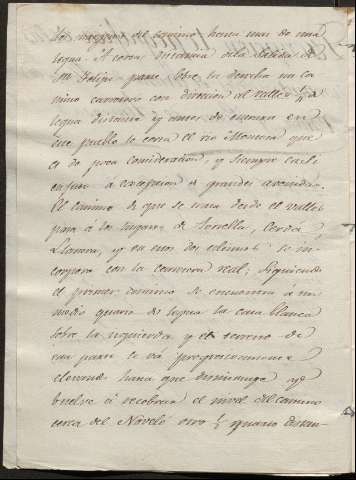 los margenes del camino hasta mas de una
legua. A corta distancia de la salida de
Sn Felipe parte sobre la derecha un ca
mino carretero con direccion al Vallés 1/4 de
legua distante y antes de entrar en
este pueblo se cruza el rio Montesa que
es de poca consideracion, y siempre vade
a excepcion de grandes avenidas.
El camino de que se trata desde el Vallés
pasa á los lugares de Torrella, Cerdá
Llanera, y en unos dos se in-
corpora con la carretera real; siguiendo
el primer camino se encuentra á un
medio quarto de legua la casa blanca
sobre la izquierda y el terreno de
esta parte se vá progresivamente
elevando hasta que disminuye y
buelve á recobrar el nivel del camino
cerca del Navelo otro 1/2 quarto distan-